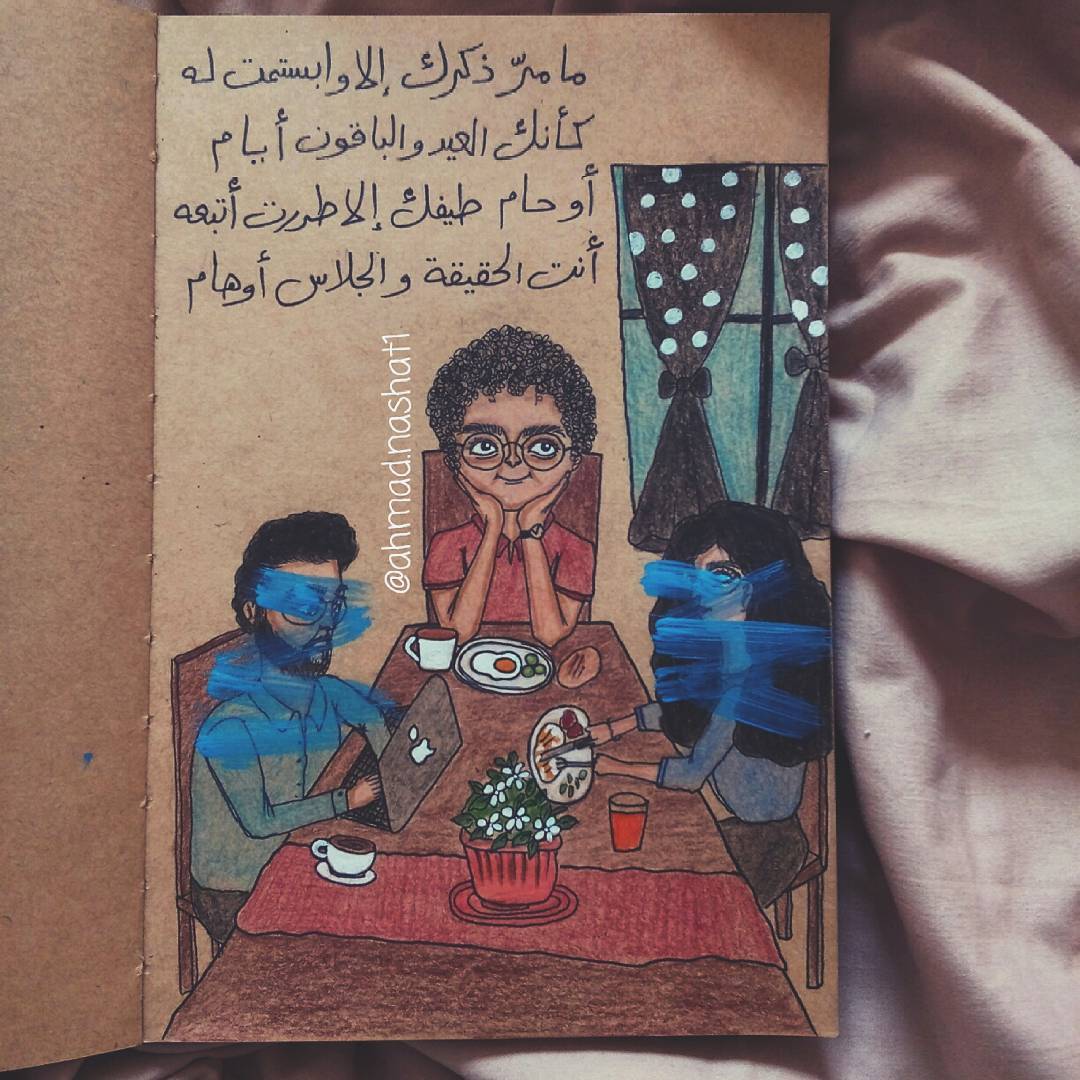 ما مرّ ذكرك إلا وابستمت له
كأنك العيد والباقون أيام
أو حام طيفك إلا طرت أتبعه
أنت الحقيقة و الجلاس أوهام
@ahmad.nashat1